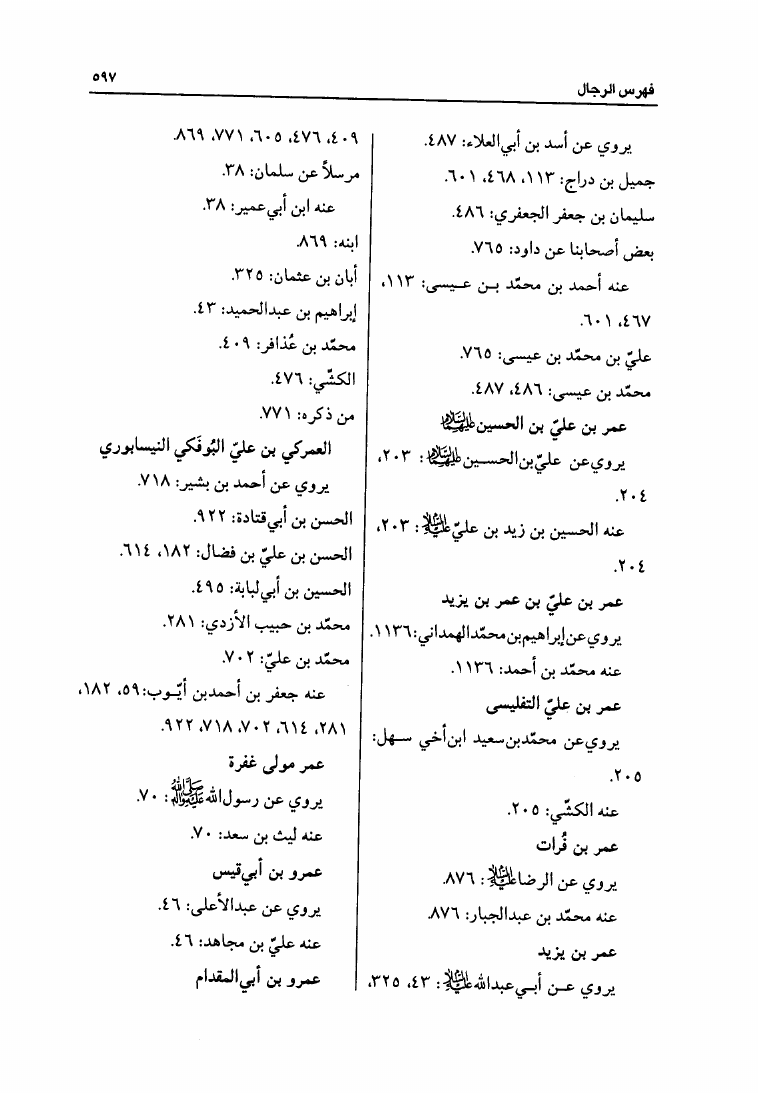 فهرس الرجال
٥٩٧
يروي عن أسد بن أبي‌العلاء: ٤٨٧.
جميل بن دراج: ١١٣، ٤٦٨، ٦٠١.
سليمان بن جعفر الجعفري: ٤٨٦.
بعض أصحابنا عن داود: ٧٦٥.
عنه أحمد بن محمّد بـن عـيسى: ١١٣،
٤٦٧، ٦٠١.
عليّ بن محمّد بن عيسى: ٧٦٥.
محمّد بن عيسى: ٤٨٦، ٤٨٧.
عمر بن عليّ بن الحسين عليهما السلام
يروي‌عن عليّ‌بن‌الحسـين عليهما السلام: ٢٠٣،
٢٠٤.
عنه الحسين بن زيد بن عليّ عليه السلام: ٢٠٣،
٢٠٤.
عمر بن عليّ بن عمر بن يزيد
يروي‌عن‌إبراهيم‌بن‌محمّد‌الهمداني: ١١٣٦.
عنه محمّد بن أحمد: ١١٣٦.
عمر بن عليّ التفليسى
يروي‌عن محمّدبن‌سعيد ابن‌أخي سـهل:
٢٠٥.
عنه الكشّي: ٢٠٥.
عمر بن فُرات
يروي عن الرضا عليه السلام: ٨٧٦.
عنه محمّد بن عبدالجبار: ٨٧٦.
عمر بن يزيد
يروي عـن أبـي‌عبدالله عليه السلام: ٤٣، ٣٢٥،
٤٠٩، ٤٧٦، ٦٠٥، ٧٧١، ٨٦٩.
مرسلاً عن سلمان: ٣٨.
عنه ابن أبي‌عمير: ٣٨.
ابنه: ٨٦٩.
أبان بن عثمان: ٣٢٥.
إبراهيم بن عبدالحميد: ٤٣.
محمّد بن عُذافر: ٤٠٩.
الكشّي: ٤٧٦.
من ذكره: ٧٧١.
العمركي بن عليّ البُوفَكي النيسابوري
يروي عن أحمد بن بشير: ٧١٨.
الحسن بن أبي‌قتادة: ٩٢٢.
الحسن بن عليّ بن فضال: ١٨٢، ٦١٤.
الحسين بن أبي‌لبابة: ٤٩٥.
محمّد بن حبيب الأزدي: ٢٨١.
محمّد بن عليّ: ٧٠٢.
عنه جعفر بن أحمدبن أيّـوب: ٥٩، ١٨٢،
٢٨١، ٦١٤، ٧٠٢، ٧١٨، ٩٢٢.
عمر مولى غفرة
يروي عن رسول‌الله صلى الله عليه وآله: ٧٠.
عنه ليث بن سعد: ٧٠.
عمرو بن أبي‌قيس
يروي عن عبدالأعلى: ٤٦.
عنه عليّ بن مجاهد: ٤٦.
عمرو بن أبي‌المقدام